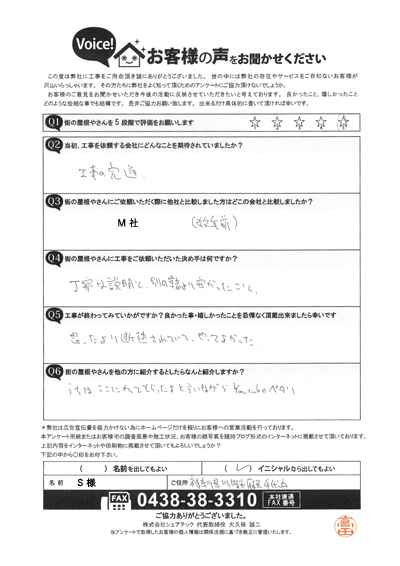 Voice!
お客様の声をお聞かせください
この度は弊社に工事をご用命頂き誠にありがとうございました。世の中には弊社の存在やサービスをご存知ないお客様が
沢山いらっしゃいます。その方たちに弊社をよく知って頂くためのアンケートにご協力頂けないでしょうか。
お客様のご意見をお聞かせいただき今後の活動に反映させていただきたいと考えております。良かったこと、嬉しかったこと
どのような些細な事でも結構です。是非ご協力お願い致します。出来るだけ具体的に書いて頂ければ幸いです。
Q1 街の屋根やさんを5段階で評価をお願いします ☆ ☆ ☆ ☆ ☆
Q2 当初、工事を依頼する会社にどんなことを期待されていましたか?
工事の完遂
Q3 街の屋根やさんにご依頼いただく際に他社と比較した方はどこの会社と比較しましたか?
M社 (数年前)
Q4 街の屋根やさんに工事をご依頼いただいた決め手は何ですか?
丁寧な説明と、別の業者より安かったこと。
Q5 工事が終わってみていかがですか?良かった事・嬉しかったことを忌憚なく頂戴出来ましたら幸いです
思ったより断熱されていて、やってよかった
Q6 街の屋根やさんを他の方に紹介するとしたらなんと紹介しますか?
うちはここにやってもらったよと言いながらYoutubeペタリ
*弊社は広告宣伝費を極力かけない為にホームページだけを頼りにお客様への営業活動を行っております。
本アンケート用紙またはお客様宅の調査風景や施工状況、お客様の顔写真を随時ブログ形式のインターネットに掲載させて頂いております。
上記内容をインターネットや印刷物に掲載させて頂いてもよろしいでしょうか?
下記の中から〇印をお付け下さい。
( ) 名前を出してもよい ( ✓ ) イニシャルなら出してもよい
名前 S様 ご住所 神奈川県川崎市麻生千代ヶ丘
FAX 0438-38-3310 本社直通 FAX番号
ご協力ありがとうございました。
株式会社シェアテック 代表取締役 大久保 誠二
当アンケートで取得したお客様の個人情報は関係法規に基づき厳正に管理いたします。